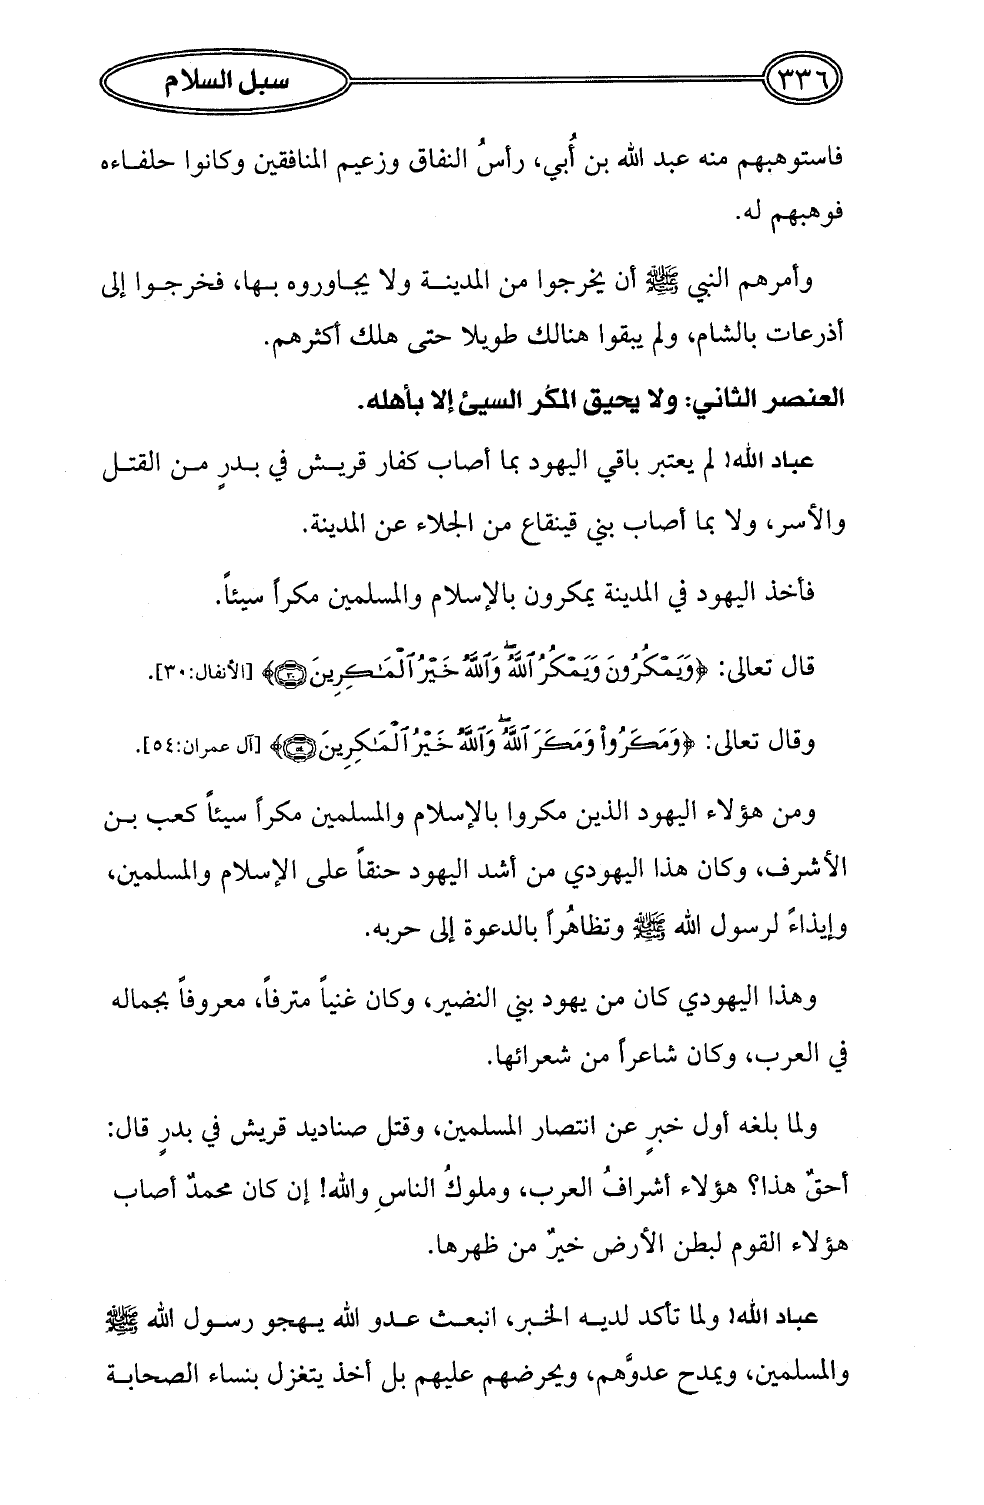 ٣٣٦
سبل السلام
فاستوهبهم منه عبد الله بن أُبي، رأسُ النفاق وزعيم المنافقين وكانوا حلفاءه
فوهبهم له.
وأمرهم النبي ﷺ أن يخرجوا من المدينة ولا يجاوروه بها، فخرجوا إلى
أذرعات بالشام، ولم يبقوا هنالك طويلا حتى هلك أكثرهم.
العنصر الثاني: ولا يحيق المكر السيئ إلا بأهله.
عباد الله! لم يعتبر باقي اليهود بما أصاب كفار قريش في بدرٍ من القتل
والأسر، ولا بما أصاب بني قينقاع من الجلاء عن المدينة.
فأخذ اليهود في المدينة يمكرون بالإسلام والمسلمين مكراً سيئاً.
قال تعالى: ﴿وَيَمْكُرُونَ وَيَمْكُرُ ٱللَّهُ ۖ وَٱللَّهُ خَيْرُ ٱلْمَـٰكِرِينَ ٣٠﴾ [الأنفال:٣٠].
وقال تعالى: ﴿وَمَكَرُوا۟ وَمَكَرَ ٱللَّهُ ۖ وَٱللَّهُ خَيْرُ ٱلْمَـٰكِرِينَ ٥٤﴾ [آل عمران:٥٤].
ومن هؤلاء اليهود الذين مكروا بالإسلام والمسلمين مكراً سيئاً كعب بن
الأشرف، وكان هذا اليهودي من أشد اليهود حنقاً على الإسلام والمسلمين،
وإيذاءً لرسول الله ﷺ وتظاهُراً بالدعوة إلى حربه.
وهذا اليهودي كان من يهود بني النضير، وكان غنياً مترفاً، معروفاً بجماله
في العرب، وكان شاعراً من شعرائها.
ولما بلغه أول خبرٍ عن انتصار المسلمين، وقتل صناديد قريش في بدرٍ قال:
أحقٌ هذا؟ هؤلاء أشرافُ العرب، وملوكُ الناسِ والله! إن كان محمدٌ أصاب
هؤلاء القوم لبطن الأرض خيرٌ من ظهرها.
عباد الله! ولما تأكد لديه الخبر، انبعث عدو الله يهجو رسول الله ﷺ
والمسلمين، ويمدح عدوَّهم، ويحرضهم عليهم بل أخذ يتغزل بنساء الصحابة